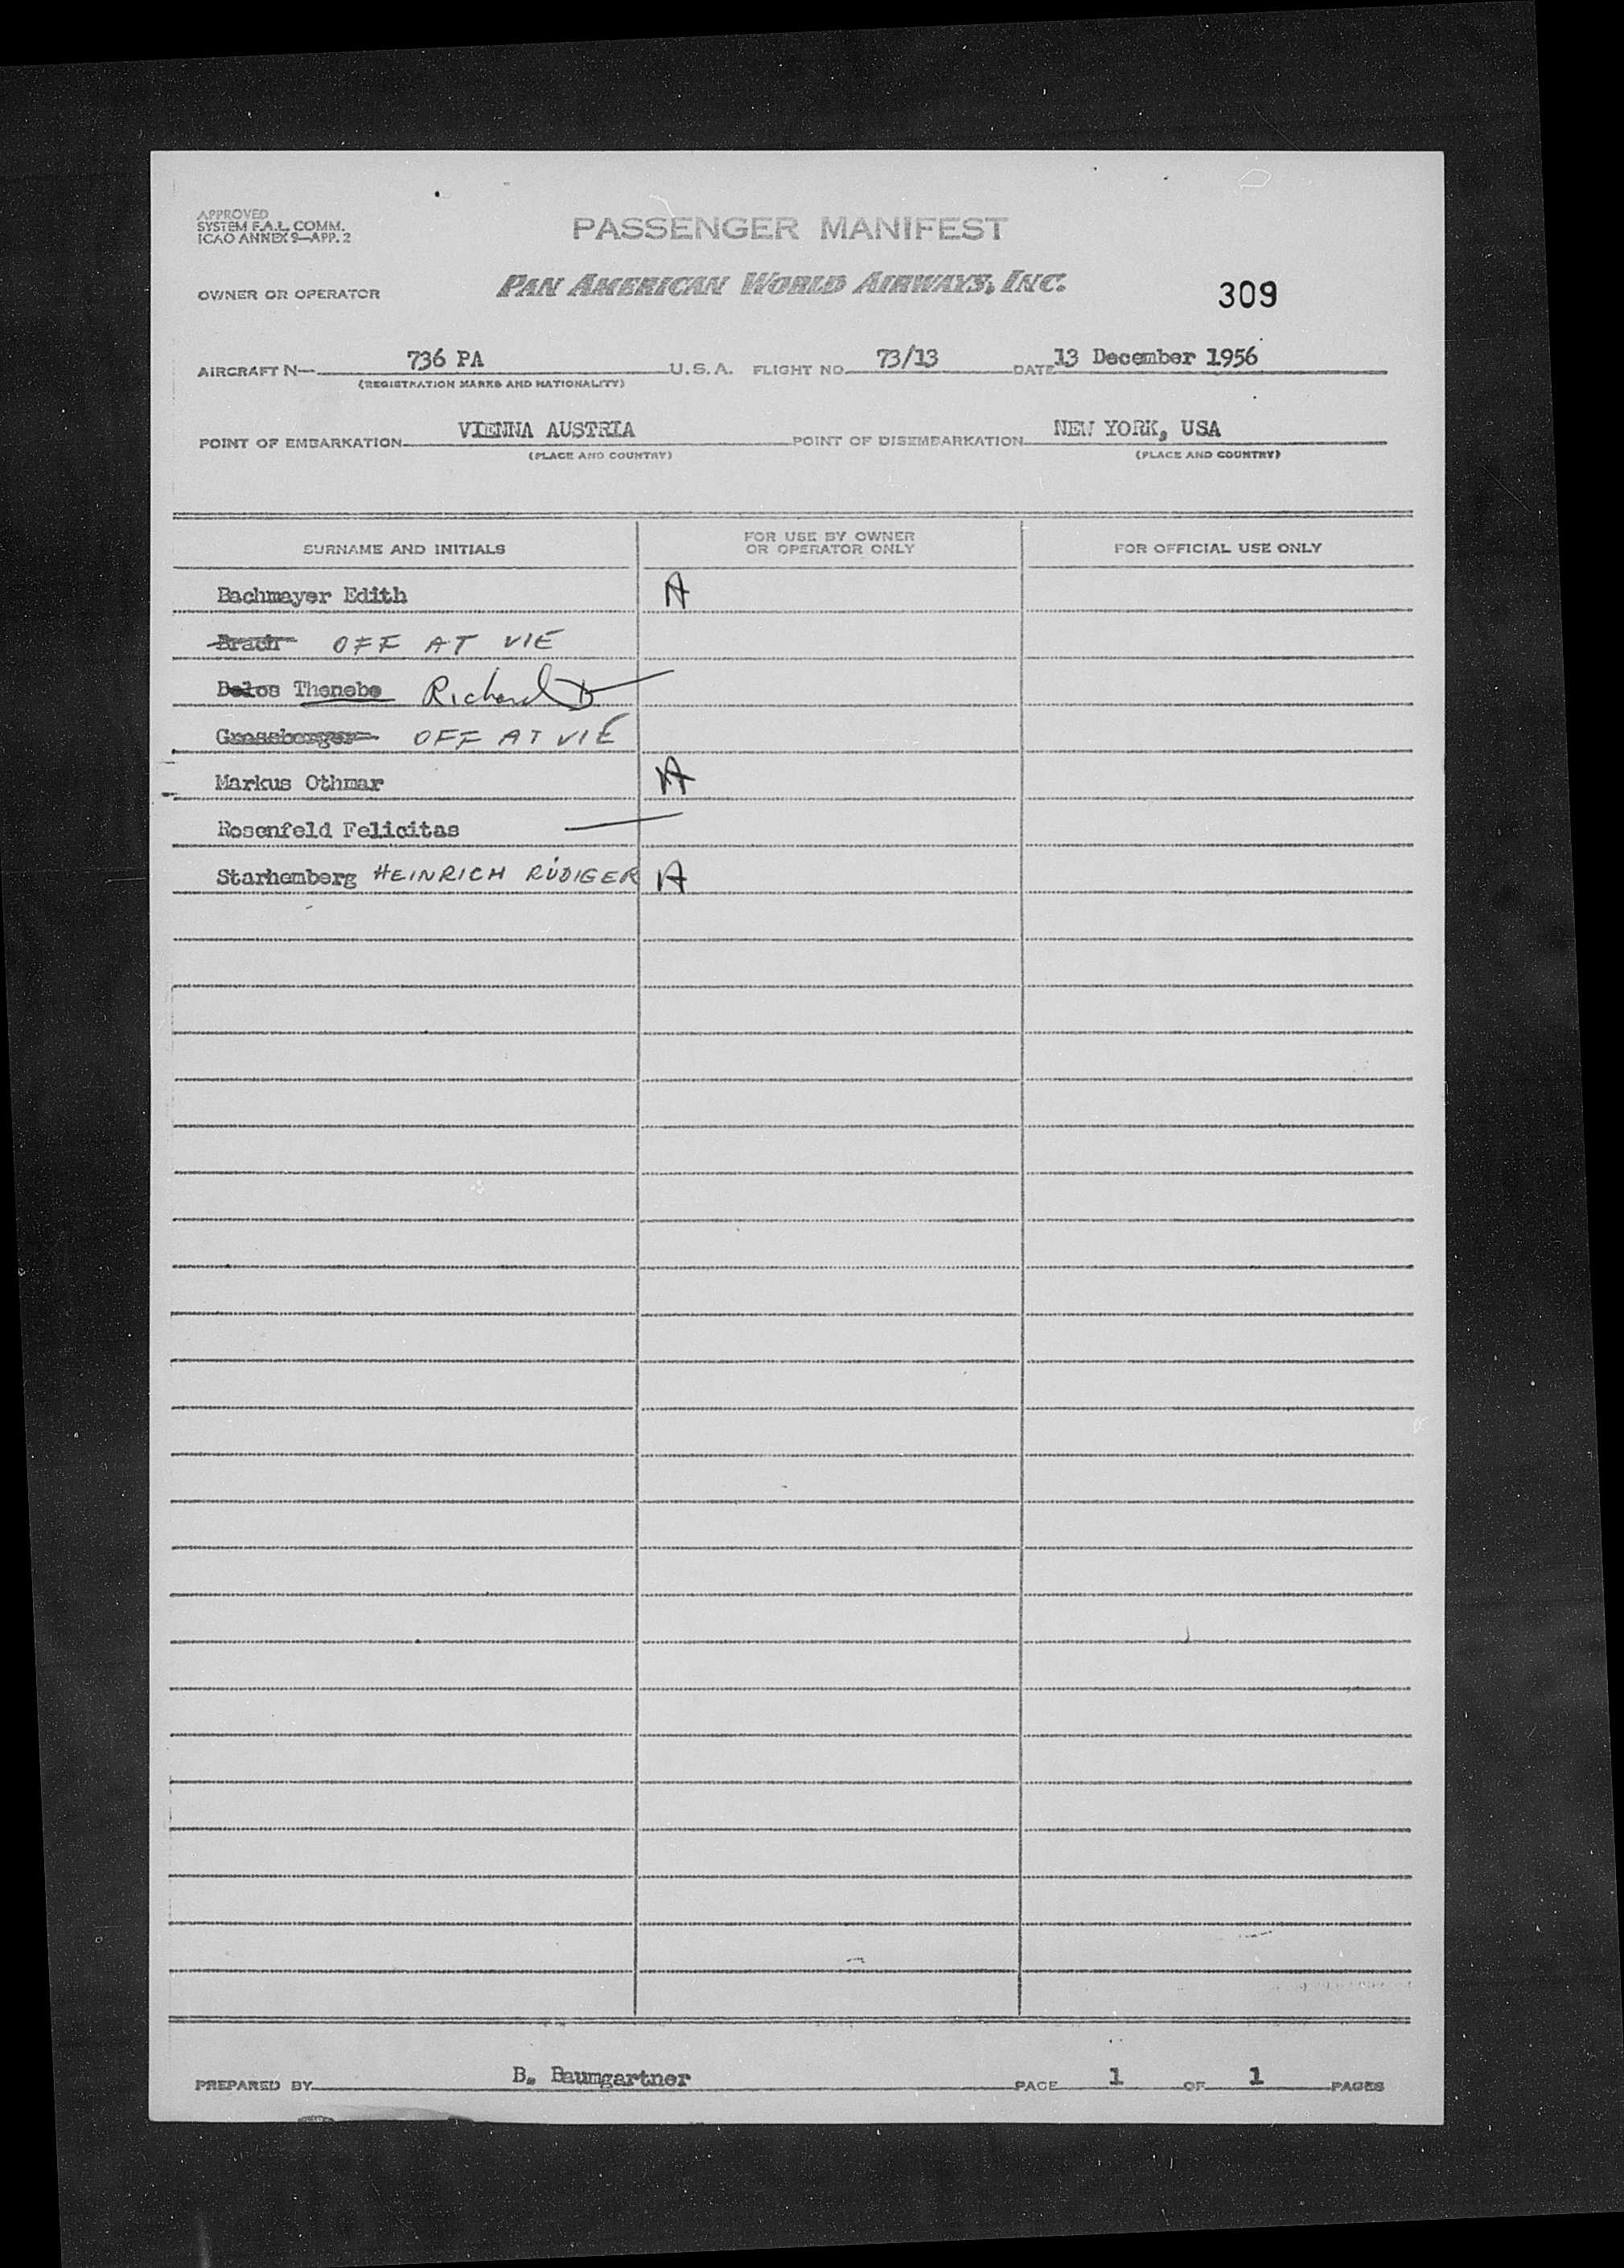 APPROVED
SYSTEM F.A.L. COMM.
ICAO ANNEX 9—APP. 2
PASSENGER MANIFEST
OWNER OR OPERATOR PAN AMERICAN WORLD AIRWAYS, INC. 309
AIRCRAFT N— 736 PA U.S.A. FLIGHT NO. 73/13 DATE 13 December 1956
(REGISTRATION MARKS AND NATIONALITY)
POINT OF EMBARKATION VIENNA AUSTRIA POINT OF DISEMBARKATION NEW YORK, USA
(PLACE AND COUNTRY) (PLACE AND COUNTRY)
SURNAME AND INITIALS FOR USE BY OWNER OR OPERATOR ONLY FOR OFFICIAL USE ONLY
Bachmayer Edith A
Brach OFF AT VIE
Thenebe Richard
Grossberger OFF AT VIE
Markus Othmar A
Rosenfeld Felicitas
Starhemberg HEINRICH RÜDIGER A
PREPARED BY B. Baumgartner PAGE 1 OF 1 PAGES